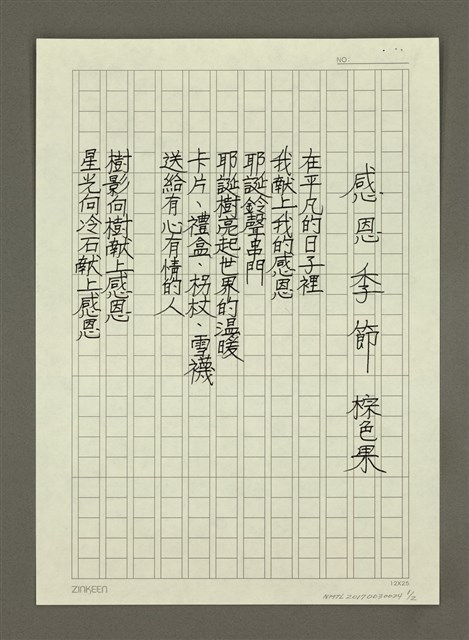 NO:
感恩季節 棕色果
在平凡的日子裡
我献上我的感恩
耶誕鈴聲串門
耶誕樹亮起世界的温暖
卡片、禮盒、枴杖、雪襪
送給有心有情的人
樹影向樹献上感恩
星光向冷石献上感恩
ZINKEEN
12X25
NMTL20170030024 1/2